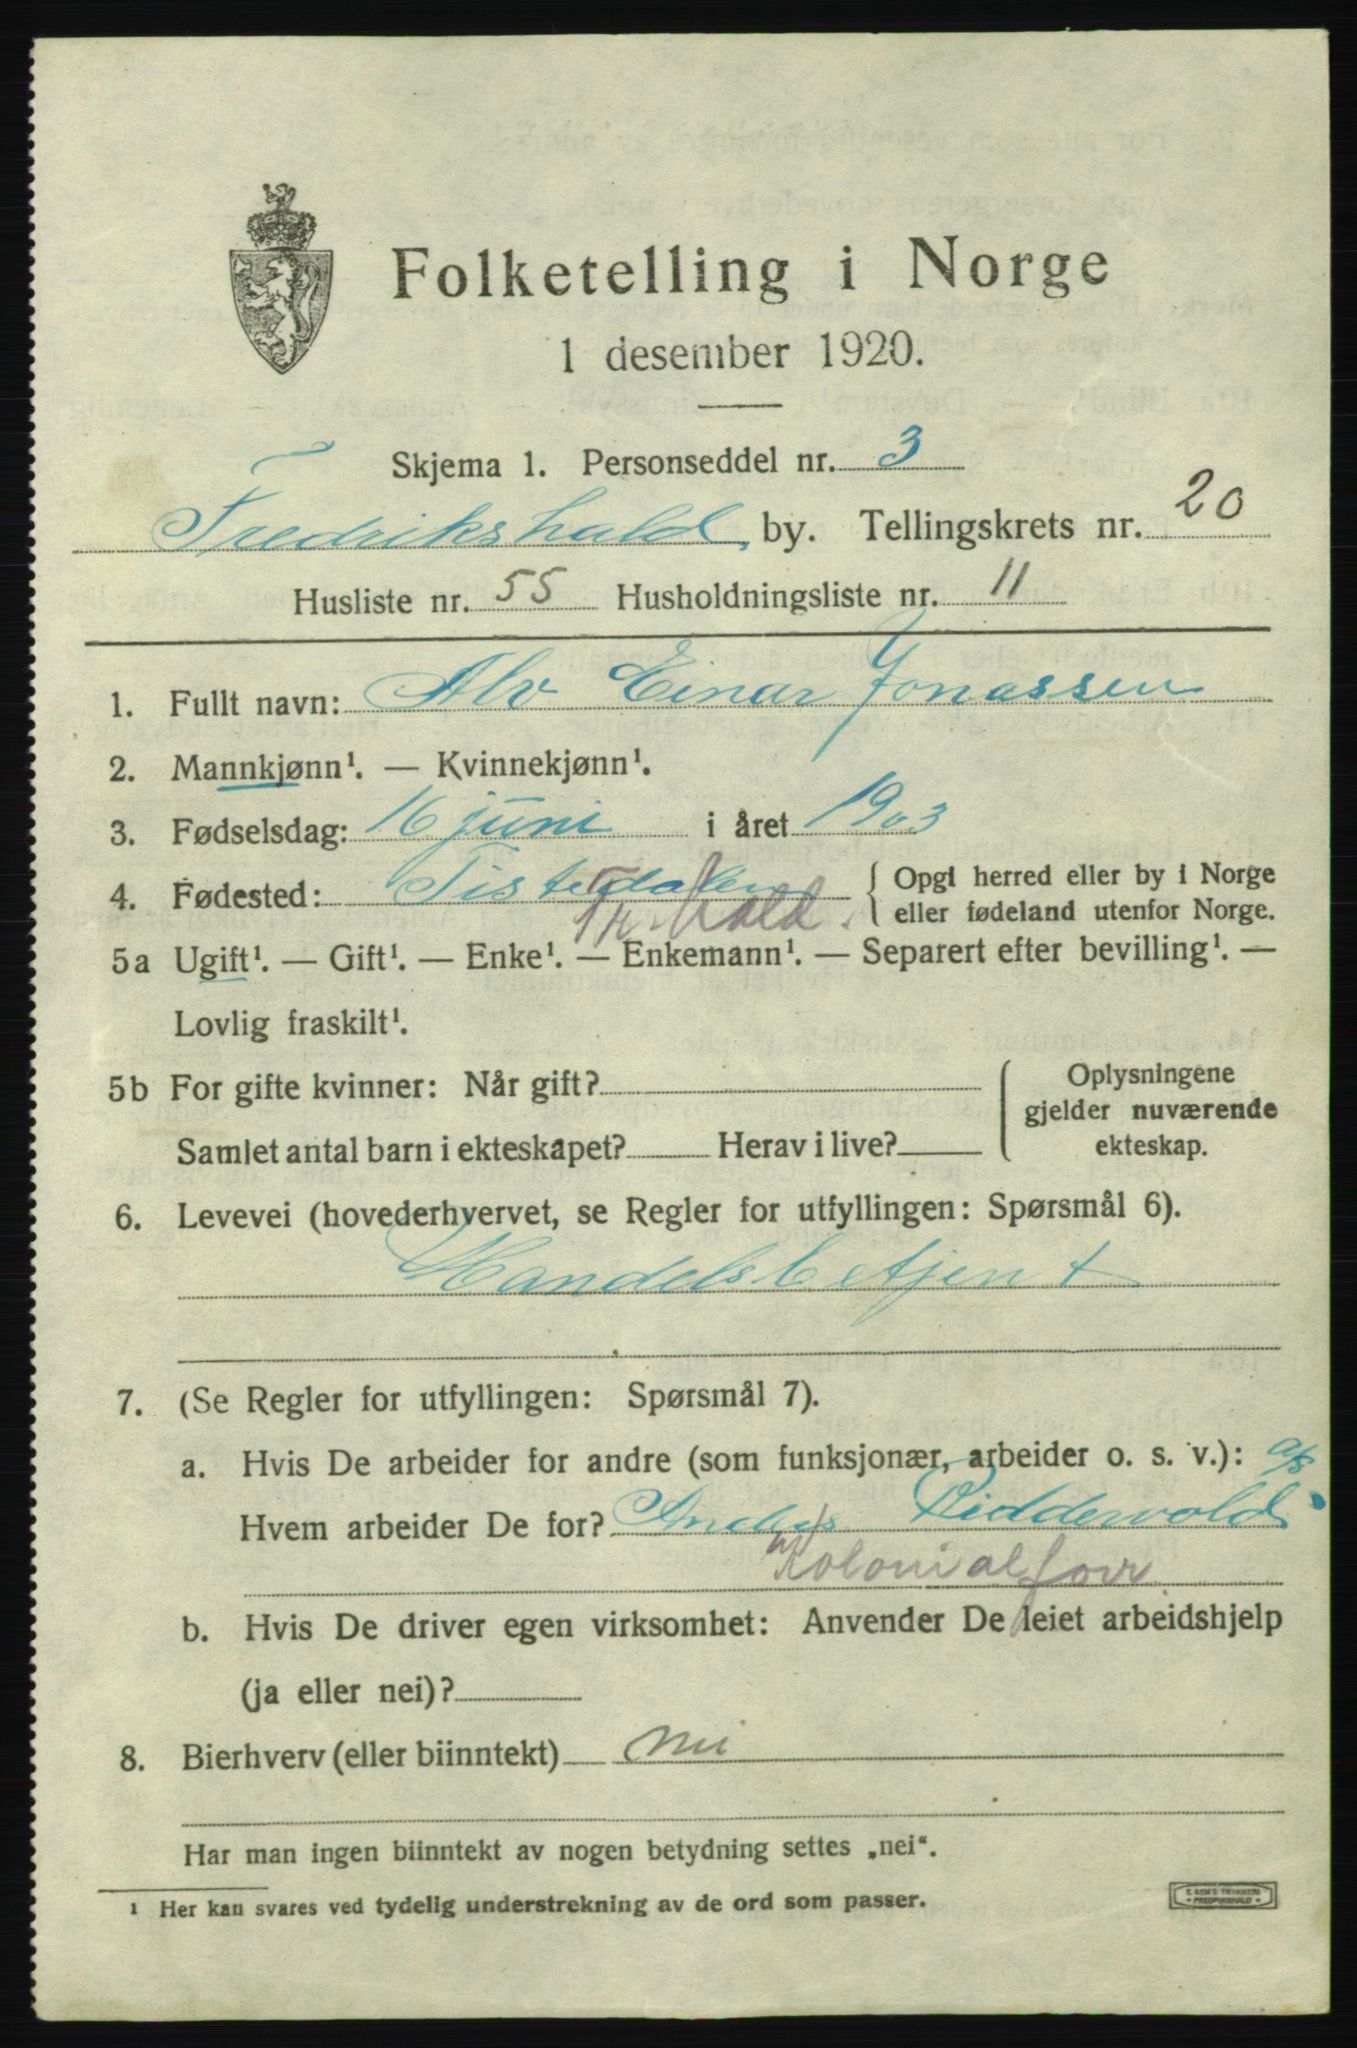 Folketelling i Norge
1 desember 1920.
Skjema 1. Personseddel nr. 3
Fredrikshald by. Tellingskrets nr. 20
Husliste nr. 55 Husholdningsliste nr. 11
1. Fullt navn: Alv Einar Jonassen
2. Mannkjønn¹. — Kvinnekjønn¹.
3. Fødselsdag: 16 juni i året 1903
4. Fødested: Tistedalen { Opgi herred eller by i Norge
Fr.hald. eller fødeland utenfor Norge.
5a Ugift¹. — Gift¹. — Enke¹. — Enkemann¹. — Separert efter bevilling¹. —
Lovlig fraskilt¹.
5b For gifte kvinner: Når gift? Oplysningene
gjelder nuværende
Samlet antal barn i ekteskapet? Herav i live? ekteskap.
6. Levevei (hovederhvervet, se Regler for utfyllingen: Spørsmål 6).
Handelsbetjent
7. (Se Regler for utfyllingen: Spørsmål 7).
a. Hvis De arbeider for andre (som funksjonær, arbeider o. s. v.): a/s
Hvem arbeider De for? Anders Riddervold
Kolonialforr.
b. Hvis De driver egen virksomhet: Anvender De leiet arbeidshjelp
(ja eller nei)?
8. Bierhverv (eller biinntekt) nei
Har man ingen biinntekt av nogen betydning settes „nei“.
¹ Her kan svares ved tydelig understrekning av de ord som passer.